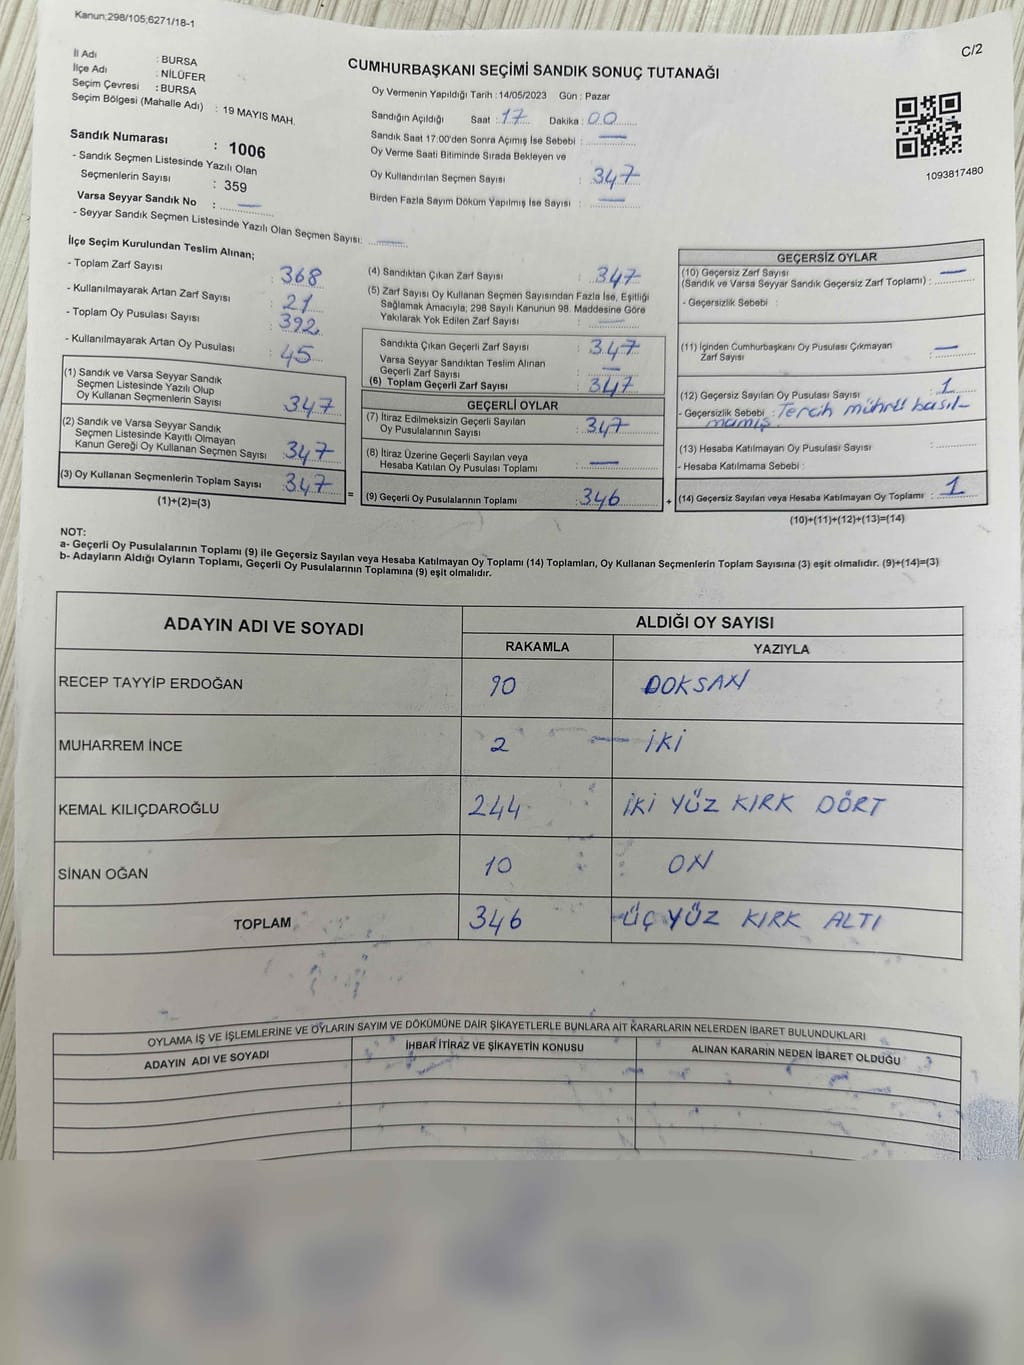 Kanun;298/105;6271/18-1
C/2
İl Adı : BURSA
İlçe Adı : NİLÜFER
Seçim Çevresi : BURSA
Seçim Bölgesi (Mahalle Adı) : 19 MAYIS MAH.
CUMHURBAŞKANI SEÇİMİ SANDIK SONUÇ TUTANAĞI
Oy Vermenin Yapıldığı Tarih : 14/05/2023 Gün : Pazar
Sandığın Açıldığı Saat : 17 Dakika : 00
Sandık Saat 17:00'den Sonra Açımış İse Sebebi : —
Oy Verme Saati Bitiminde Sırada Bekleyen ve
Oy Kullandırılan Seçmen Sayısı : 347
Birden Fazla Sayım Döküm Yapılmış İse Sayısı : —
1093817480
Sandık Numarası : 1006
- Sandık Seçmen Listesinde Yazılı Olan
Seçmenlerin Sayısı : 359
Varsa Seyyar Sandık No : —
- Seyyar Sandık Seçmen Listesinde Yazılı Olan Seçmen Sayısı: —
İlçe Seçim Kurulundan Teslim Alınan;
- Toplam Zarf Sayısı : 368
- Kullanılmayarak Artan Zarf Sayısı : 21
- Toplam Oy Pusulası Sayısı : 392
- Kullanılmayarak Artan Oy Pusulası : 45
(1) Sandık ve Varsa Seyyar Sandık
Seçmen Listesinde Yazılı Olup
Oy Kullanan Seçmenlerin Sayısı : 347
(2) Sandık ve Varsa Seyyar Sandık
Seçmen Listesinde Kayıtlı Olmayan
Kanun Gereği Oy Kullanan Seçmen Sayısı : 347
(3) Oy Kullanan Seçmenlerin Toplam Sayısı : 347
(1)+(2)=(3)
(4) Sandıktan Çıkan Zarf Sayısı : 347
(5) Zarf Sayısı Oy Kullanan Seçmen Sayısından Fazla İse, Eşitliği
Sağlamak Amacıyla; 298 Sayılı Kanunun 98. Maddesine Göre
Yakılarak Yok Edilen Zarf Sayısı : —
Sandıkta Çıkan Geçerli Zarf Sayısı : 347
Varsa Seyyar Sandıktan Teslim Alınan
Geçerli Zarf Sayısı : —
(6) Toplam Geçerli Zarf Sayısı : 347
GEÇERLİ OYLAR
(7) İtiraz Edilmeksizin Geçerli Sayılan
Oy Pusulalarının Sayısı : 347
(8) İtiraz Üzerine Geçerli Sayılan veya
Hesaba Katılan Oy Pusulası Toplamı : —
= (9) Geçerli Oy Pusulalarının Toplamı : 346 +
GEÇERSİZ OYLAR
(10) Geçersiz Zarf Sayısı
(Sandık ve Varsa Seyyar Sandık Geçersiz Zarf Toplamı) : —
- Geçersizlik Sebebi :
(11) İçinden Cumhurbaşkanı Oy Pusulası Çıkmayan
Zarf Sayısı : —
(12) Geçersiz Sayılan Oy Pusulası Sayısı : 1
- Geçersizlik Sebebi : Tercih mührü basıl-
mamış
(13) Hesaba Katılmayan Oy Pusulası Sayısı :
- Hesaba Katılmama Sebebi :
(14) Geçersiz Sayılan veya Hesaba Katılmayan Oy Toplamı : 1
(10)+(11)+(12)+(13)=(14)
NOT:
a- Geçerli Oy Pusulalarının Toplamı (9) ile Geçersiz Sayılan veya Hesaba Katılmayan Oy Toplamı (14) Toplamları, Oy Kullanan Seçmenlerin Toplam Sayısına (3) eşit olmalıdır. (9)+(14)=(3)
b- Adayların Aldığı Oyların Toplamı, Geçerli Oy Pusulalarının Toplamına (9) eşit olmalıdır.
ADAYIN ADI VE SOYADI ALDIĞI OY SAYISI
RAKAMLA YAZIYLA
RECEP TAYYİP ERDOĞAN 90 DOKSAN
MUHARREM İNCE 2 İKİ
KEMAL KILIÇDAROĞLU 244 İKİ YÜZ KIRK DÖRT
SİNAN OĞAN 10 ON
TOPLAM 346 ÜÇ YÜZ KIRK ALTI
OYLAMA İŞ VE İŞLEMLERİNE VE OYLARIN SAYIM VE DÖKÜMÜNE DAİR ŞİKAYETLERLE BUNLARA AİT KARARLARIN NELERDEN İBARET BULUNDUKLARI
ADAYIN ADI VE SOYADI İHBAR İTİRAZ VE ŞİKAYETİN KONUSU ALINAN KARARIN NEDEN İBARET OLDUĞU